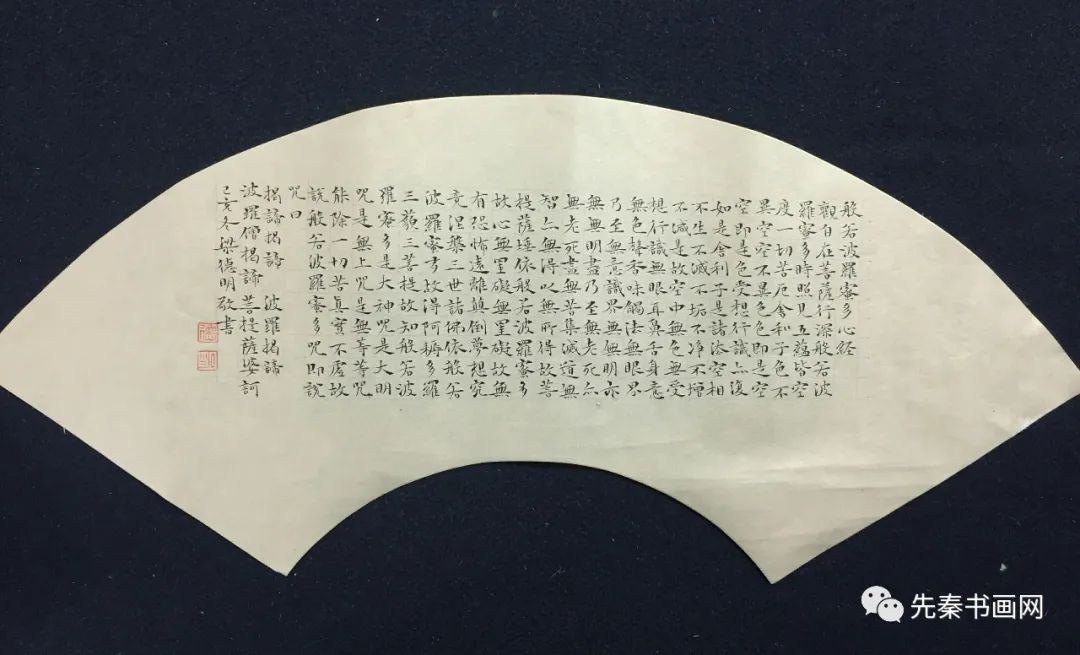 般若波羅蜜多心経
觀自在菩薩行深般若波
羅蜜多時照見五蘊皆空
度一切苦厄舍利子色不
異空空不異色色即是空
空即是色受想行識亦復
如是舍利子是諸法空相
不生不滅不垢不淨不增
不減是故空中無色無受
想行識無眼耳鼻舌身意
無色聲香味觸法無眼界
乃至無意識界無無明亦
無無明盡乃至無老死亦
無老死盡無苦集滅道無
智亦無得以無所得故菩
提薩埵依般若波羅蜜多
故心無罣礙無罣礙故無
有恐怖遠離顛倒夢想究
竟涅槃三世諸佛依般若
波羅蜜多故得阿耨多羅
三藐三菩提故知般若波
羅蜜多是大神咒是大明
咒是無上咒是無等等咒
能除一切苦真實不虛故
說般若波羅蜜多咒即說
咒曰
揭諦揭諦 波羅揭諦
波羅僧揭諦 菩提薩婆訶
己亥冬梁德明敬書
先秦书画网